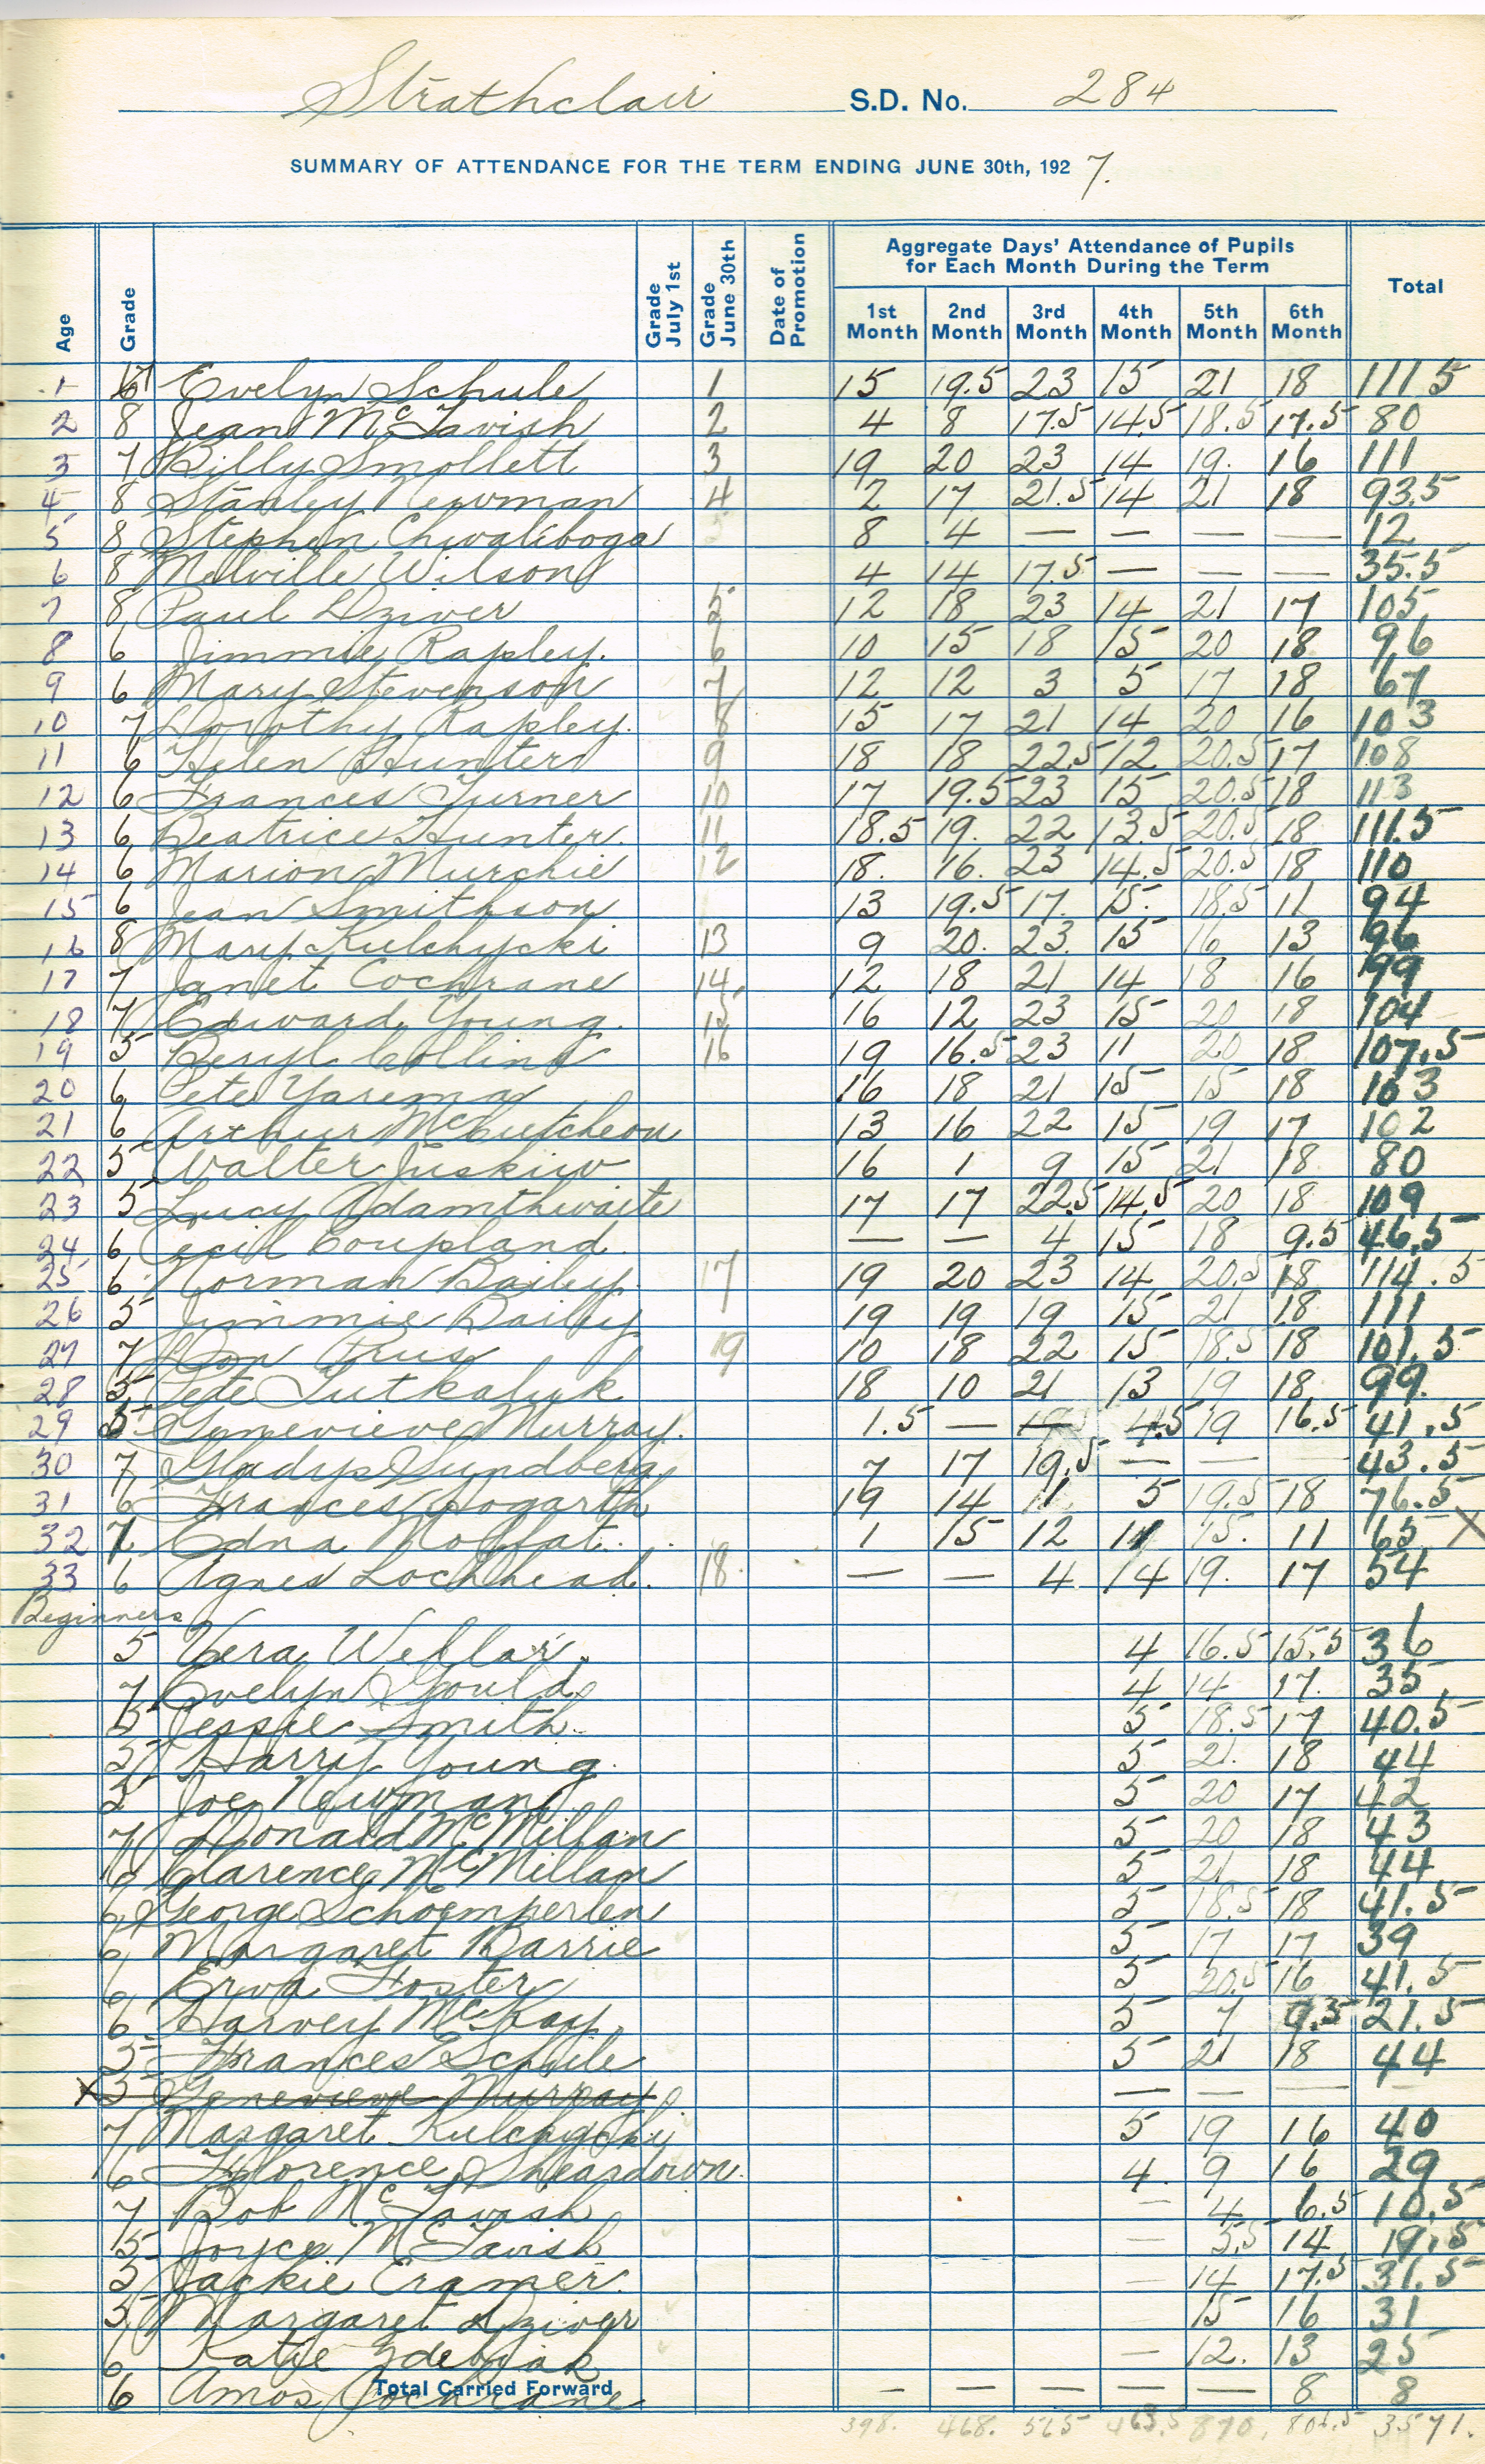 Strathclair S.D. No. 284
SUMMARY OF ATTENDANCE FOR THE TERM ENDING JUNE 30th, 1927.
Age Grade Grade July 1st Grade June 30th Date of Promotion Aggregate Days' Attendance of Pupils for Each Month During the Term Total
1st Month 2nd Month 3rd Month 4th Month 5th Month 6th Month
1 Evelyn Schule 1 15 19.5 23 15 21 18 111.5
2 8 Jean McTavish 2 4 8 17.5 14.5 18.5 17.5 80
3 7 Billy Smollett 3 19 20 23 14 19. 16 111
4 8 Stanley Newman 4 2 17 21.5 14 21 18 93.5
5 8 Stephen Chwaliboga 8 4 — — — — 12
6 8 Melville Wilson 4 14 17.5 — — — 35.5
7 8 Paul Dziver 5 12 18 23 14 21 17 105
8 6 Jimmie Rapley. 6 10 15 18 15 20 18 96
9 6 Mary Stevenson 7 12 12 3 5 17 18 67
10 7 Dorothy Rapley. 8 15 17 21 14 20 16 103
11 6 Helen Hunter 9 18 18 22.5 12 20.5 17 108
12 6 Frances Turner 10 17 19.5 23 15 20.5 18 113
13 6 Beatrice Hunter. 11 18.5 19. 22 13.5 20.5 18 111.5
14 6 Marion Murchie 12 18. 16. 23 14.5 20.5 18 110
15 6 Jean Smithson 13 19.5 17. 15. 18.5 11 94
16 8 Mary Kulchycki 13 9 20. 23. 15 16 13 96
17 7 Janet Cochrane 14. 12 18 21 14 18 16 99
18 7 Edward Young. 15 16 12 23 15 20 18 104
19 5 Beryl Collins 16 19 16.5 23 11 20 18 107.5
20 6 Pete Yarema 16 18 21 15 15 18 103
21 6 Arthur McCutcheon 13 16 22 15 19 17 102
22 5 Walter Juskiw 16 1 9 15 21 18 80
23 5 Lucy Adamthwaite 17 17 22.5 14.5 20 18 109
24 6 Cecil Coupland. — — 4 15 18 9.5 46.5
25 6 Norman Bailey. 17 19 20 23 14 20.5 18 114.5
26 5 Jimmie Bailey 19 19 19 15 21 18 111
27 7 Prus 19 10 18 22 15 18.5 18 101.5
28 5 Pete Tutkaluk 18 10 21 13 19 18 99.
29 5 Genevieve Murray. 1.5 — 4.5 19 16.5 41.5
30 7 Gladys Sundberg 7 17 19.5 — — — 43.5
31 6 Frances Hogarth 19 14 11 5 19.5 18 76.5
32 7 Edna Moffat. 1 15 12 11 15. 11 65 X
33 6 Agnes Lochhead. 18. — — 4 14 19. 17 54
Beginners
5 Vera Wellar. 4 16.5 15.5 36
7 Evelyn Gould. 4 14 17. 35
5 Jessie Smith. 5 18.5 17 40.5
5 Harry Young. 5 21. 18 44
5 Joe Newman 5 20 17 42
7 Donald McMillan 5 20 18 43
6 Clarence McMillan 5 21 18 44
6 George Schoemperlen 5 18.5 18 41.5
6 Margaret Barrie 5 17 17 39
6 Erwa Foster 5 20.5 16 41.5
6 Harvey McKay. 5 7 9.5 21.5
5 Frances Schule 5 21 18 44
X 5 Genevieve Murray. — — — —
7 Margaret Kulchycky 5 19 16 40
6 Florence Sheardown. 4. 9 16 29
7 Bob McTavish — 4 6.5 10.5
5 Joyce McTavish — 5.5 14 19.5
5 Jackie Cramer. — 14 17.5 31.5
5 Margaret Dziver 15 16 31
6 Katie Zdebiak — 12. 13 25
6 Amos Cochrane Total Carried Forward — — — — — 8 8
398. 468. 565 463.5 870. 806.5 3571.